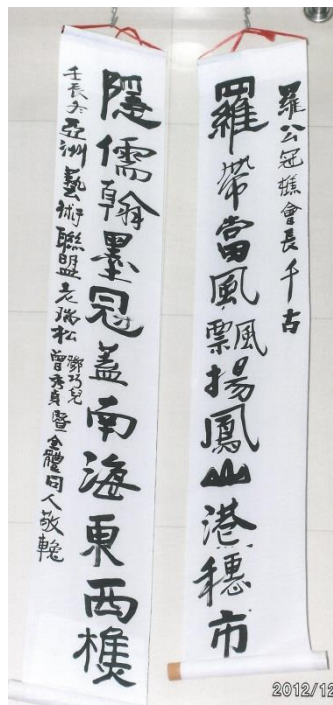 羅公冠樵會長千古
羅帶當風飄揚鳳山港穗市
隱儒翰墨冠蓋南海東西樵
壬辰冬亞洲藝術聯盟老瑞松鄧巧兒曾秀貞暨全體同人敬輓
2012/12